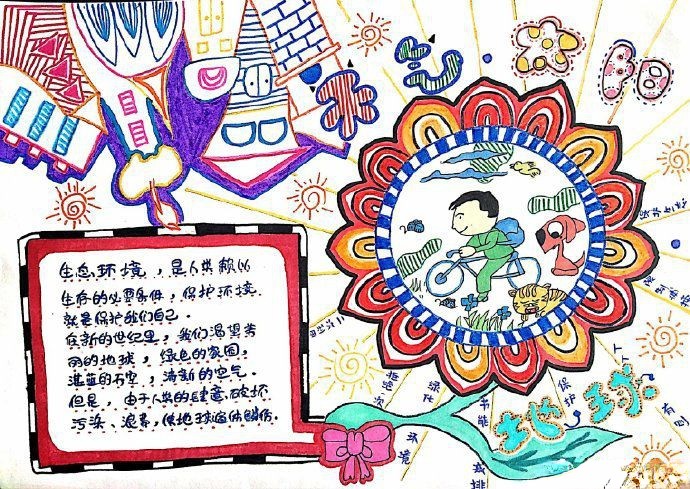 生态环境，是人类赖以
生存的必要条件，保护环境
就是保护我们自己。
在新的世纪里，我们渴望美
丽的地球，绿色的家园，
湛蓝的天空，清新的空气。
但是，由于人类的肆意破坏
污染、浪费，使地球遍体鳞伤。
地球
保护
节能
减排
环境